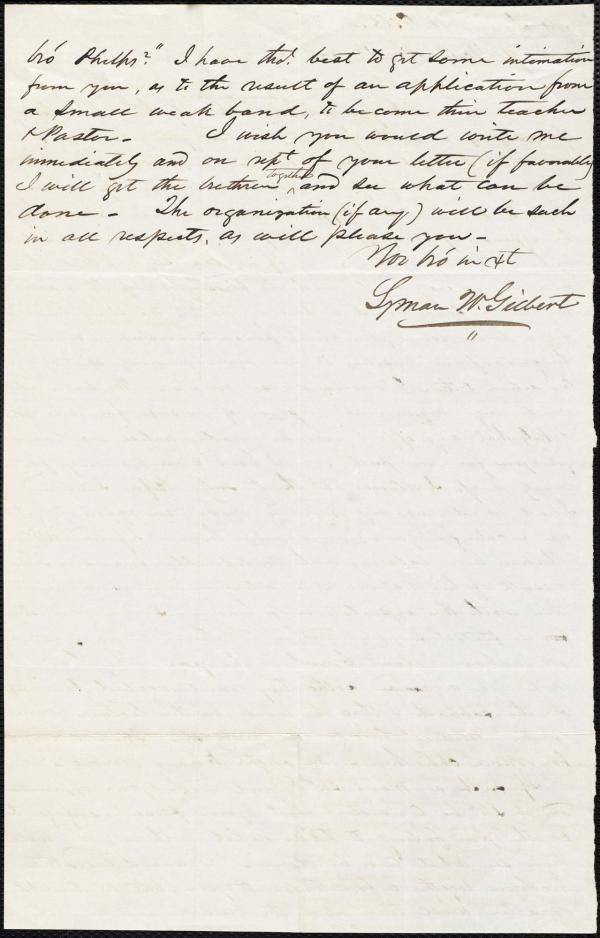 bro' Phelps?" I have tho't best to get some intimation
from you, as to the result of an application from
a small weak band, to become their teacher
& Pastor - I wish you would write me
immediately and on rept of your letter (if favorable)
I will get the brethren together and see what can be
done - The organization (if any) will be such
in all respects, as will please you -
Yor bro' in Xt
Lyman W. Gilbert